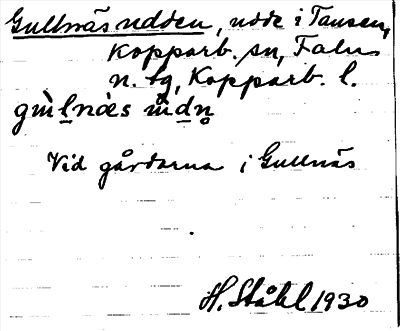 Gullnäsudden, udde i Tansen,
Kopparb. sn, Falu
n. tg, Kopparb. l.
Vid gårdarna i Gullnäs
H. Ståhl 1930